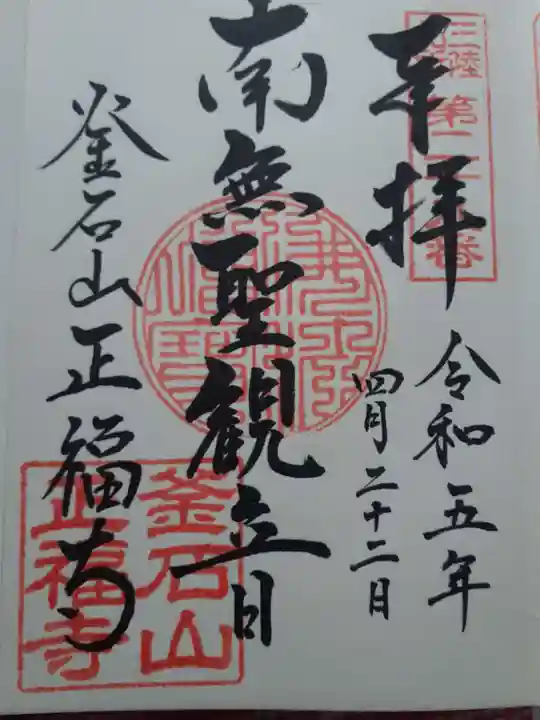 奉拝
三陸
令和五年
四月二十二日
南無聖観音
釜石山正福寺
釜石山
正福寺